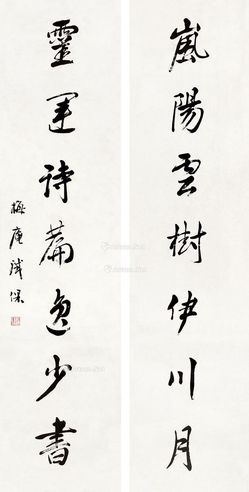 嵐陽雲樹伊川月
靈運詩篇逸少書
梅庵鐵保